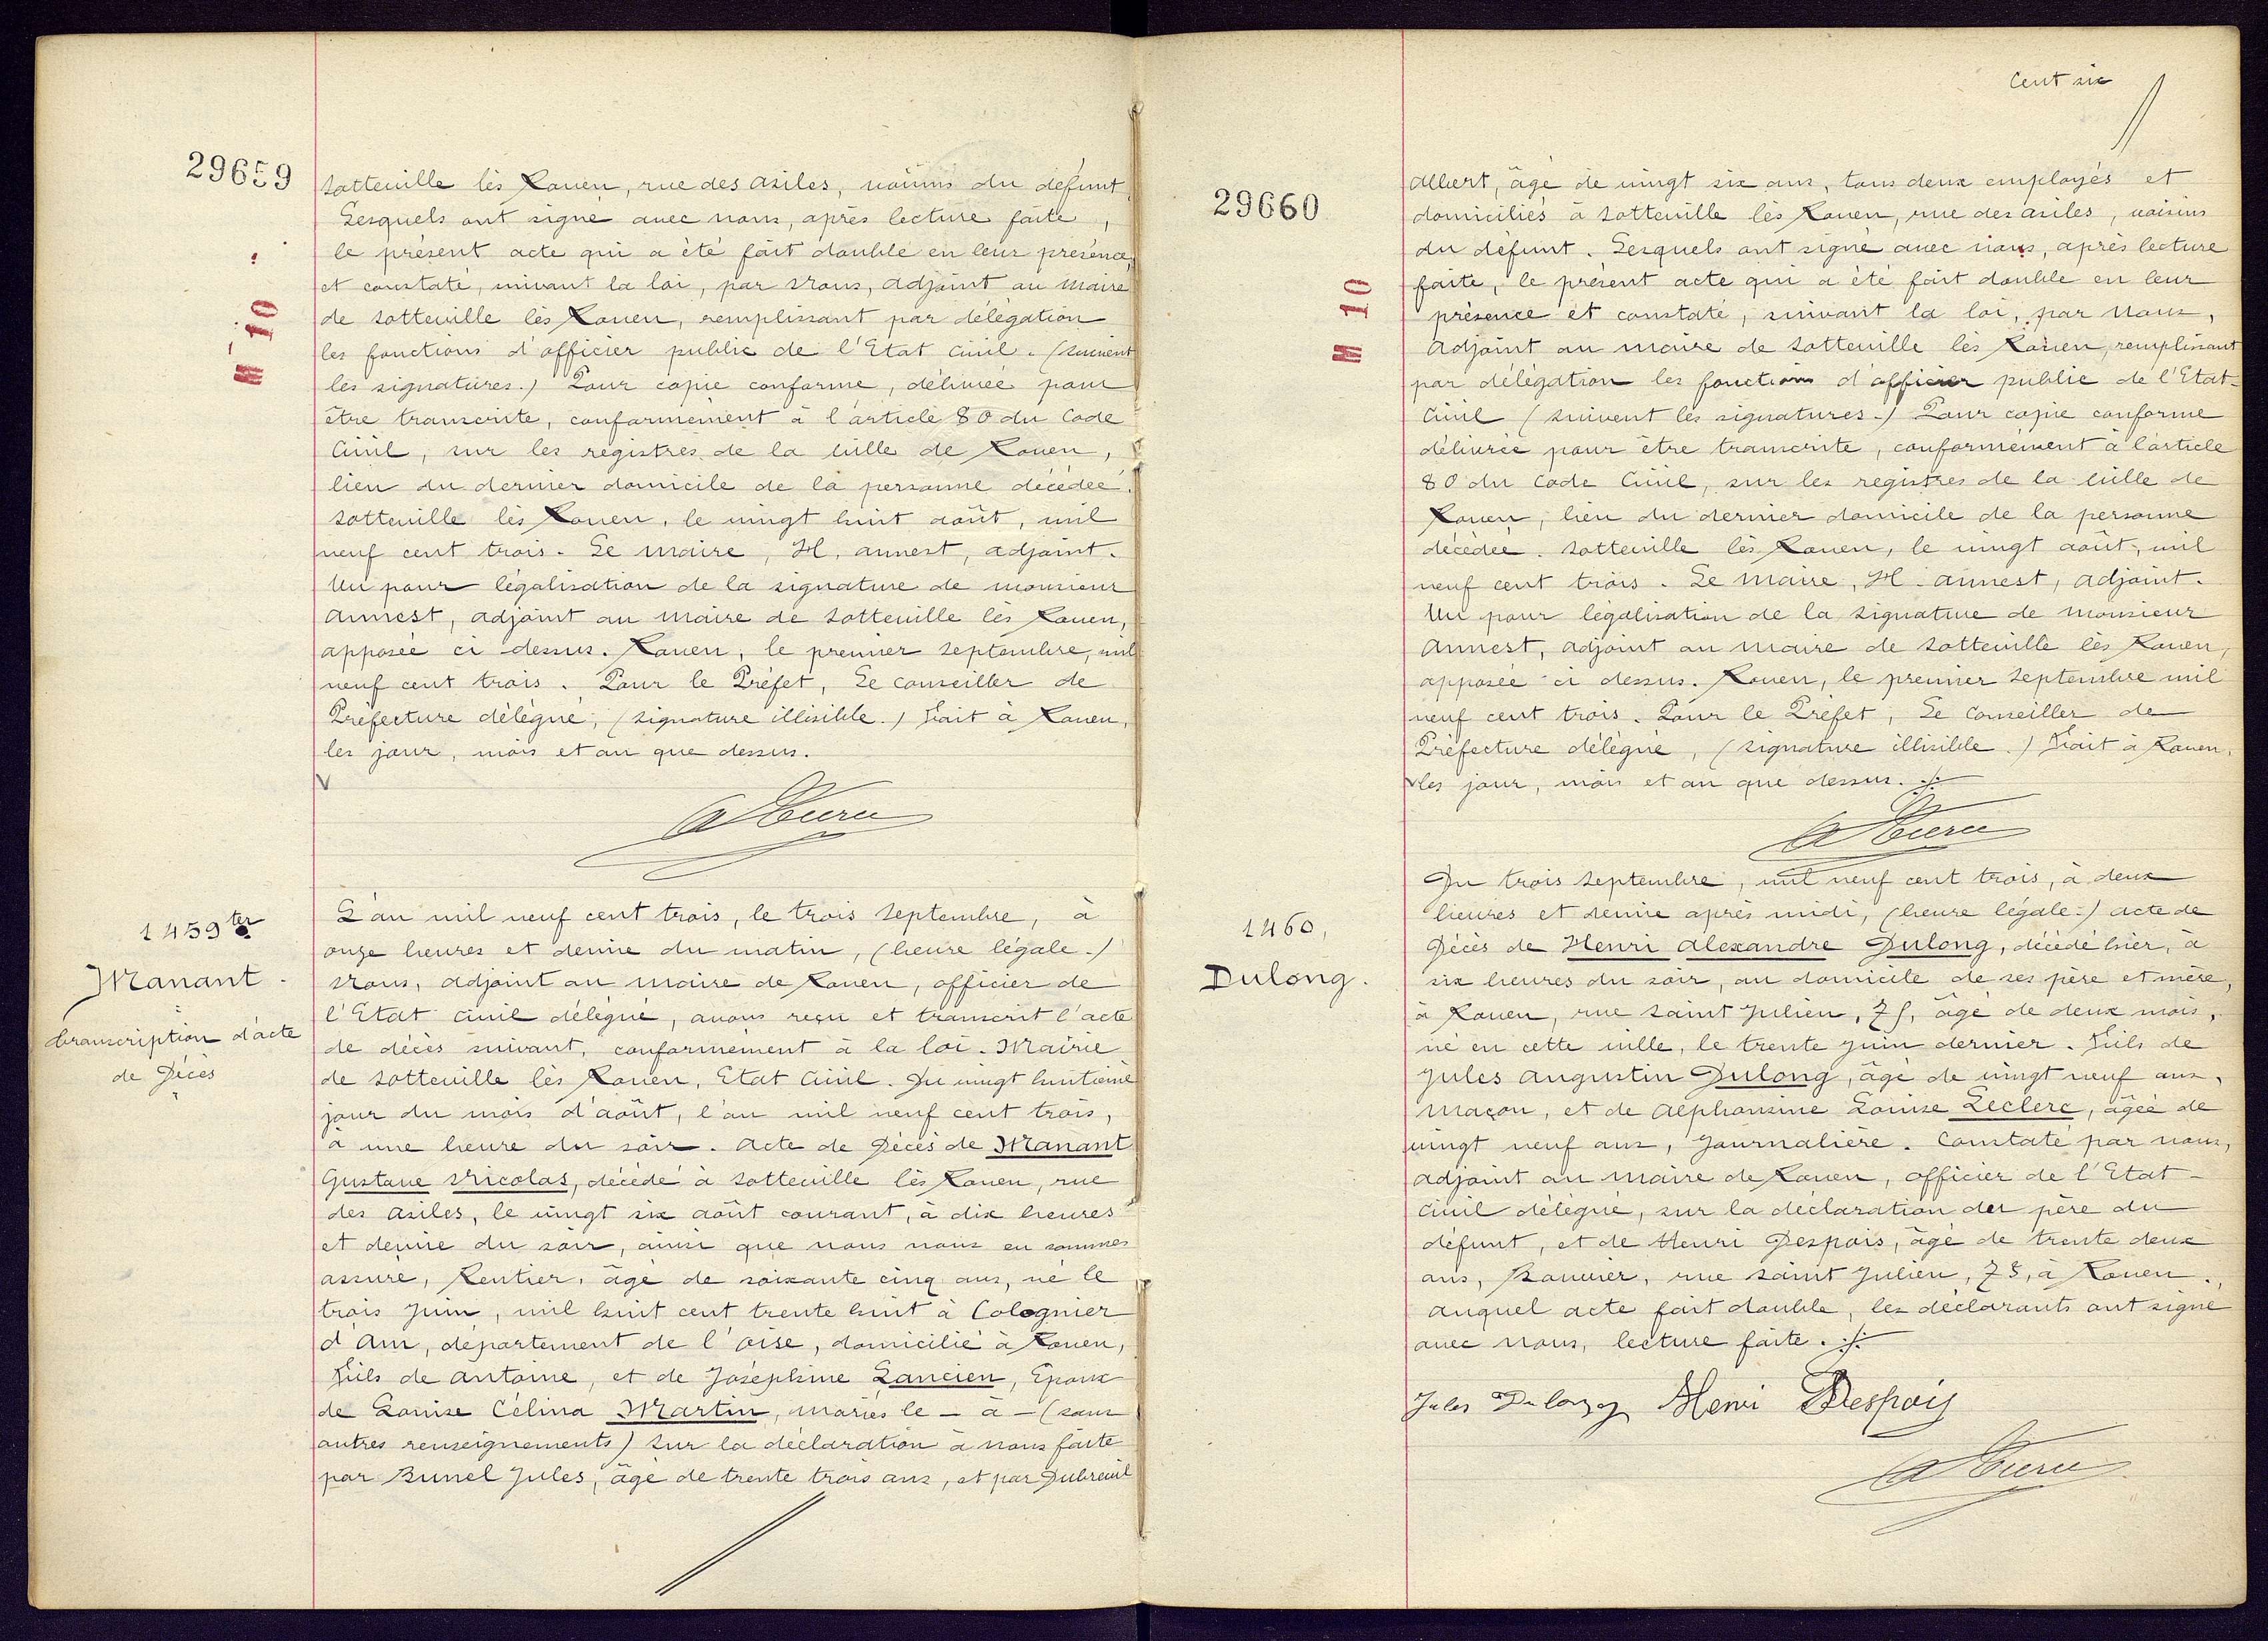 29659
M 10
Sotteville lès Rouen, rue des asiles, voisins du défunt.
Lesquels ont signé avec nous, après lecture faite,
le présent acte qui a été fait double en leur présence,
et constaté, suivant la loi, par Nous, adjoint au Maire
de Sotteville lès Rouen, remplissant par délégation
les fonctions d'officier public de l'Etat Civil. (suivent
les signatures.) Pour copie conforme, délivrée pour
être transcrite, conformément à l'article 80 du Code
Civil, sur les registres de la ville de Rouen,
lieu du dernier domicile de la personne décédée.
Sotteville lès Rouen, le vingt huit août, mil
neuf cent trois. Le Maire, H. Annest, adjoint.
Vu pour légalisation de la signature de monsieur
Annest, adjoint au Maire de Sotteville lès Rouen,
apposée ci dessus. Rouen, le premier septembre, mil
neuf cent trois. Pour le Préfet, Le Conseiller de
Préfecture délégué, (signature illisible.) Fait à Rouen,
les jour, mois et an que dessus.
1459 ter
Manant.
transcription d'acte
de Décès
L'an mil neuf cent trois, le trois septembre, à
onze heures et demie du matin, (heure légale.)
Nous, adjoint au Maire de Rouen, officier de
l'Etat Civil délégué, avons reçu et transcrit l'acte
de décès suivant, conformément à la loi. Mairie
de Sotteville lès Rouen, Etat Civil. Du vingt huitième
jour du mois d'août, l'an mil neuf cent trois,
à une heure du soir. Acte de Décès de Manant
Gustave Nicolas, décédé à Sotteville lès Rouen, rue
des asiles, le vingt six août courant, à dix heures
et demie du soir, ainsi que nous nous en sommes
assuré, Rentier, âgé de soixante cinq ans, né le
trois Juin, mil huit cent trente huit à Colognier
d'Am, département de l'oise, domicilié à Rouen,
Fils de Antoine, et de Joséphine Lancien, Epoux
de Louise Célina Martin, mariés le - à - (sans
autres renseignements) Sur la déclaration à nous faite
par Bunel Jules, âgé de trente trois ans, et par Dubreuil
Cent six
29660
M 10
Albert, âgé de vingt six ans, tous deux employés et
domiciliés à Sotteville lès Rouen, rue des asiles, voisins
du défunt. Lesquels ont signé avec nous, après lecture
faite, le présent acte qui a été fait double en leur
présence et constaté, suivant la loi, par Nous,
Adjoint au maire de Sotteville lès Rouen, remplissant
par délégation les fonctions d'officier public de l'Etat-
Civil (suivent les signatures.) Pour copie conforme
délivrée pour être transcrite, conformément à l'article
80 du Code Civil, sur les registres de la ville de
Rouen, lieu du dernier domicile de la personne
décédée. Sotteville lès Rouen, le vingt août, mil
neuf cent trois. Le Maire, H. Annest, adjoint.
Vu pour légalisation de la signature de Monsieur
Annest, adjoint au Maire de Sotteville lès Rouen,
apposée ci dessus. Rouen, le premier Septembre mil
neuf cent trois. Pour le Préfet, Le Conseiller de
Préfecture délégué, (signature illisible.) Fait à Rouen,
les jour, mois et an que dessus.
1460.
Dulong.
Du trois Septembre, mil neuf cent trois, à deux
heures et demie après midi, (heure légale.) acte de
Décès de Henri Alexandre Dulong, décédé hier, à
six heures du soir, au domicile de ses père et mère,
à Rouen, rue Saint Julien, 75, âgé de deux mois,
né en cette ville, le trente Juin dernier. Fils de
Jules Augustin Dulong, âgé de vingt neuf ans,
Maçon, et de Alphonsine Louise Leclerc, âgée de
vingt neuf ans, Journalière. Constaté par nous,
adjoint au Maire de Rouen, officier de l'Etat-
Civil délégué, sur la déclaration du père du
défunt, et de Henri Despois, âgé de trente deux
ans, rue Saint Julien, 75, à Rouen.
auquel acte fait double, les déclarants ont signé
avec nous, lecture faite.
Jules Dulong Henri Despois